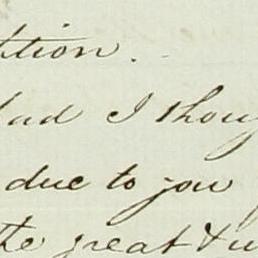 ption.
had I thoug
due to you
the great & u